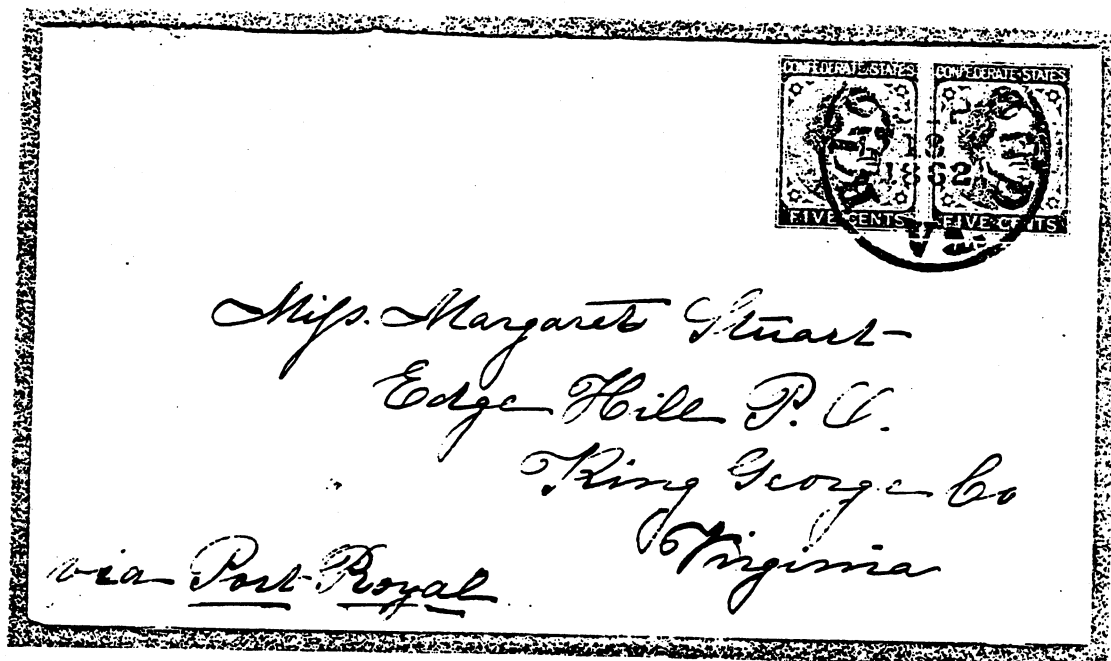 CONFEDERATE STATES CONFEDERATE STATES
13
1862
FIVE CENTS FIVE CENTS
VA.
Miss. Margaret Stuart
Edge Hill P. O.
King George Co
Virginia
via Port Royal